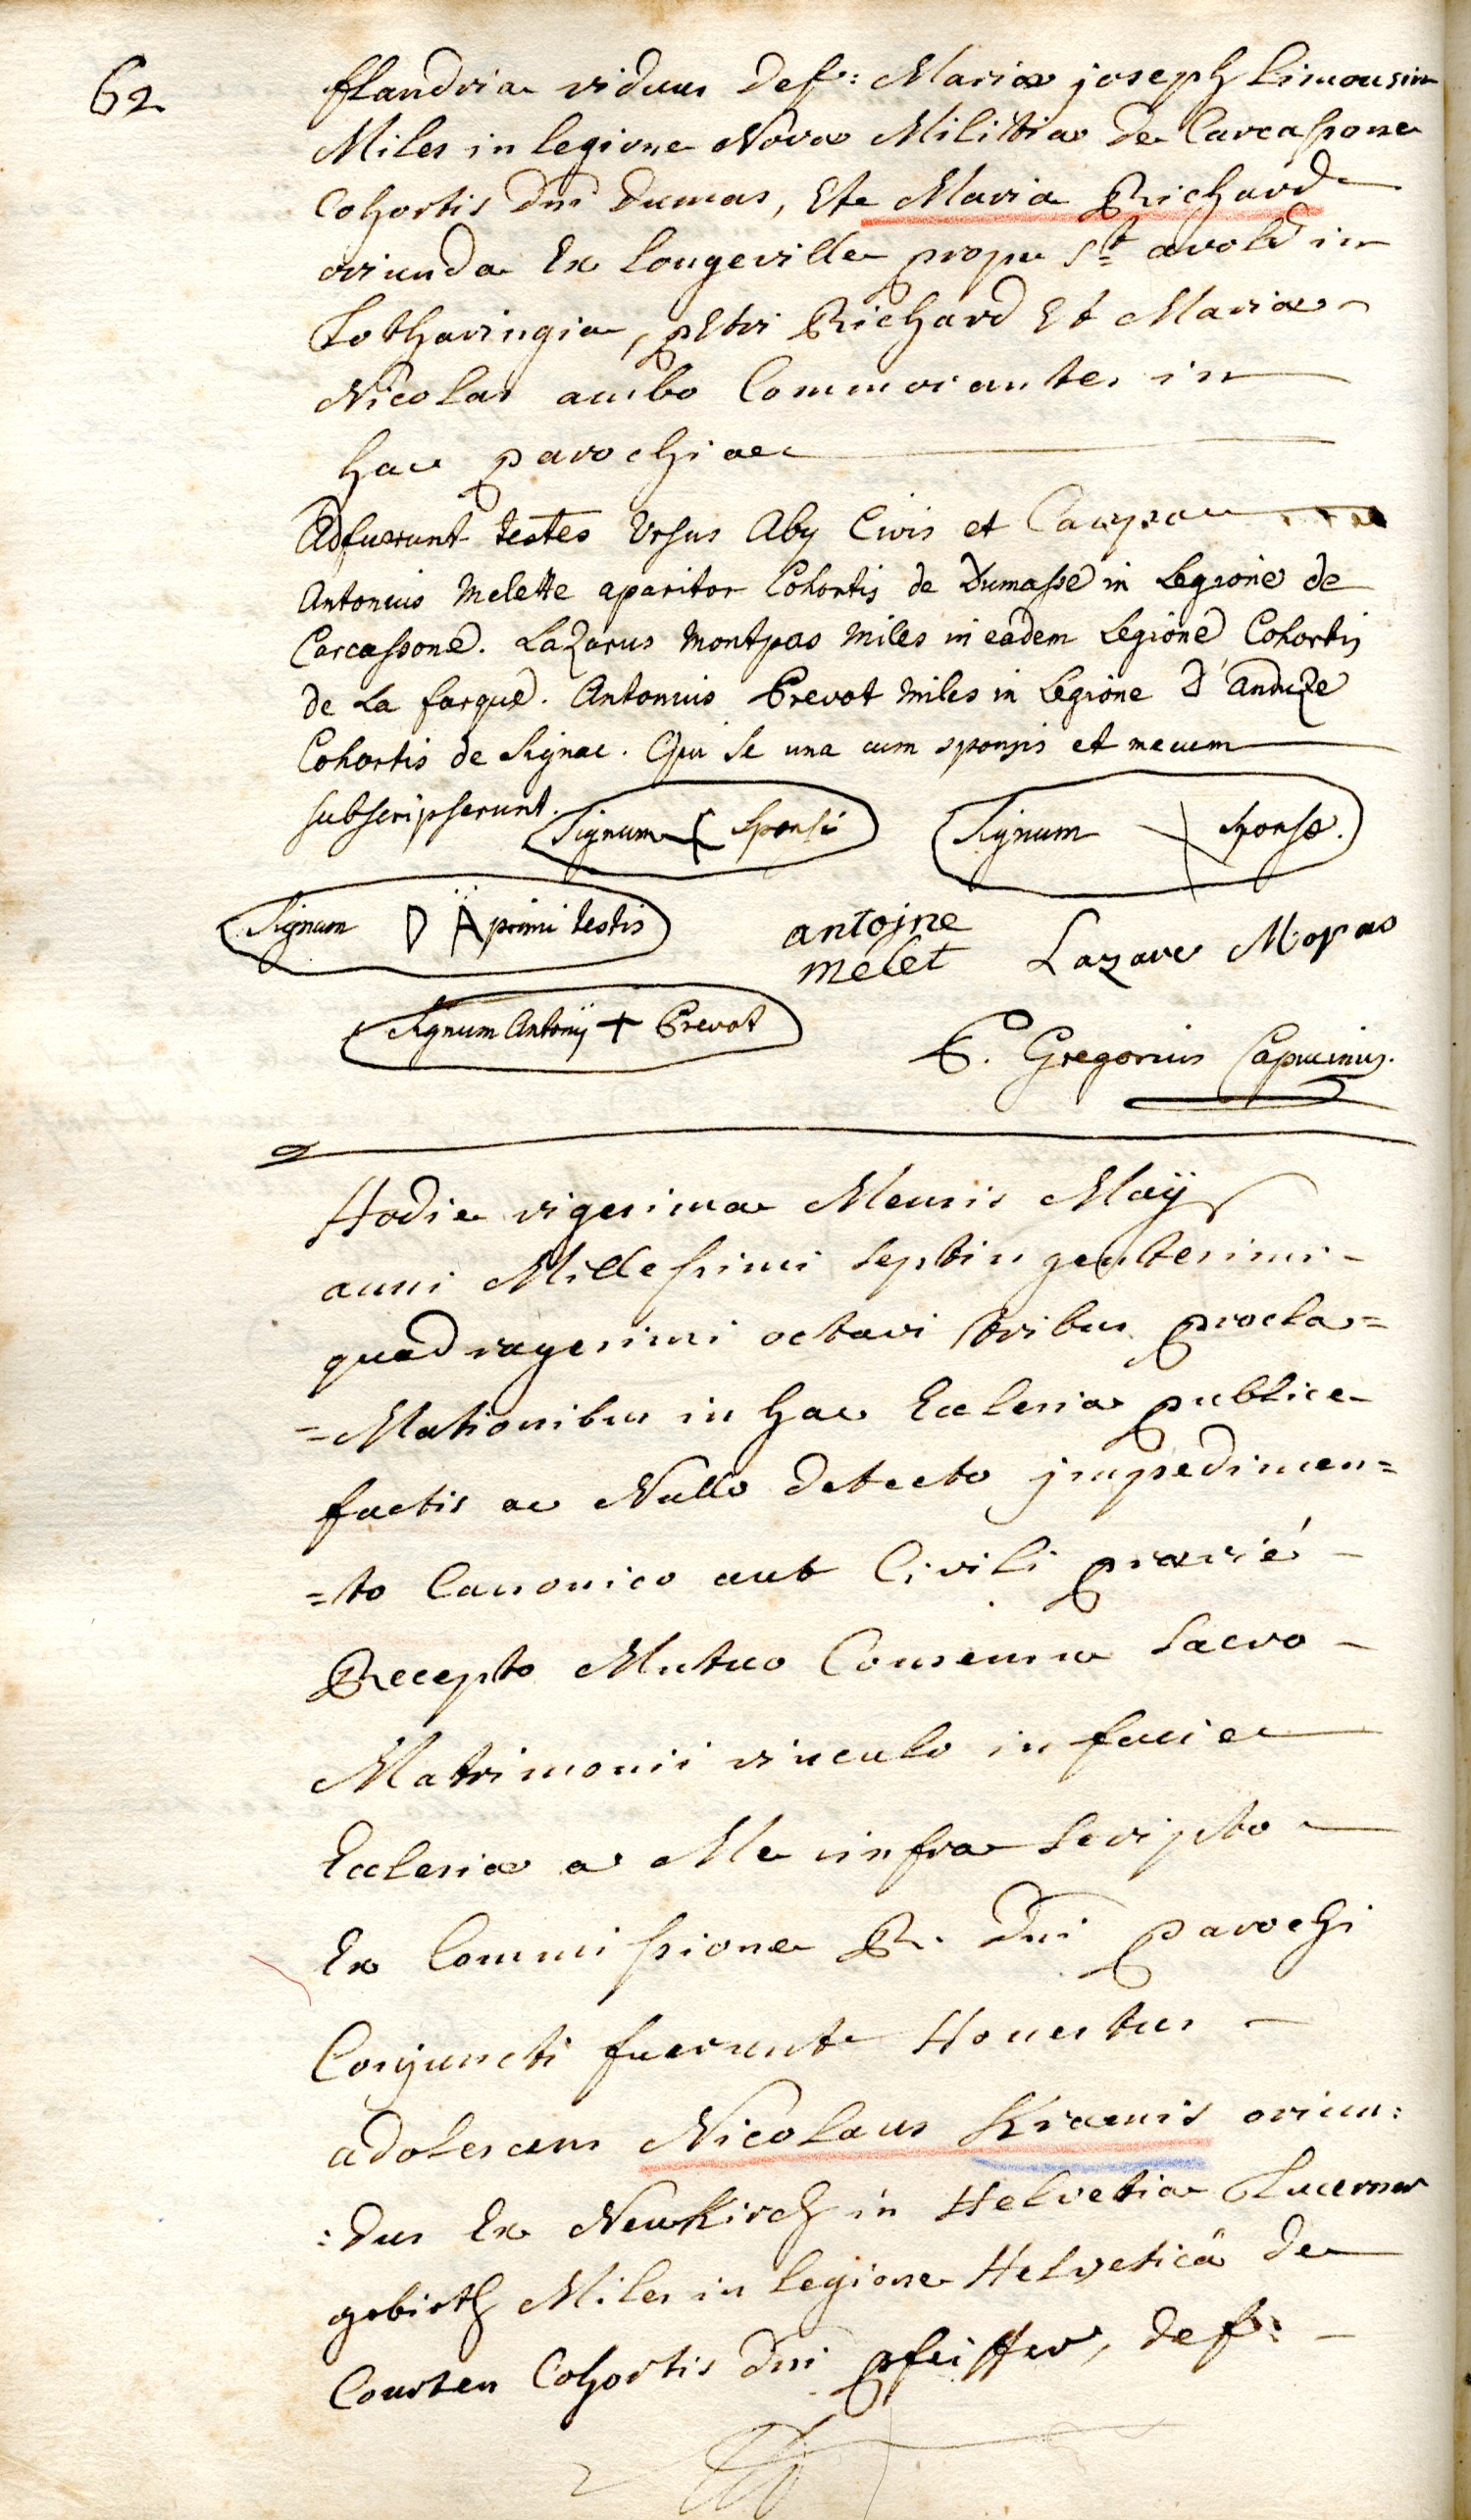 62
flandria viduus def: Mariæ joseph Limousin
Miles in legione Novæ Militiæ de Carcassone
Cohortis Dni Dumas, Et Maria Richard
oriunda Ex Longeville prope St avold in
Lotharingia, petri Richard Et Mariæ
Nicolas ambo Commorantes in
hac parochia
Adfuerunt testes Ursus Aby Civis et
Antonius Melette aparitor Cohortis de Dumasse in Legione de
Carcassone. Lazarus Montpas Miles in eadem Legione Cohortis
de La farque. Antonius Prevot Miles in Legione D'anduze
Cohortis de Signac. Qui se una cum sponsis et mecum
subscripserunt.
Signum Sponsi
Signum Sponsæ.
Signum D A primi testis
antoine
melet
Lazare Mopas
Signum Antonij + Prevot
P. Gregorius Capucinus.
Hodie vigesima Mensis Maÿ
anni Millessimi septingentesimi -
quadragesimi octavi tribus procla=
=Mationibus in hac Ecclesia publice
factis ac Nullo detecto jmpedimen=
=to Canonico aut Civili prævié -
Recepto Mutuo Consensu Sacro -
Matrimonii vinculo in facie
Ecclesiæ a Me infra scripto
Ex Commissione R. Dni parochi
Conjuncti fuerunt Honestus -
adolescens Nicolaus Kramis oriun:
:dus Ex Newkirch in Helvetia Lucerner
gebieth Miles in legione Helvetica de
Courten Cohortis Dni pfeiffer, def: -